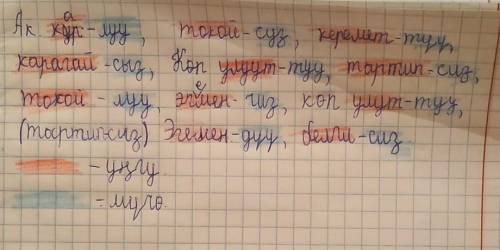 Ак кар-луу, токой-суз, керемет-туу,
карагай-сыз, Көп улуут-туу, тартип-сиз,
токой-луу, эгемен-сиз, көп улут-туу,
(тартип-сиз) Эгемен-дуу, белги-сиз
- уңгу
- мүчө.